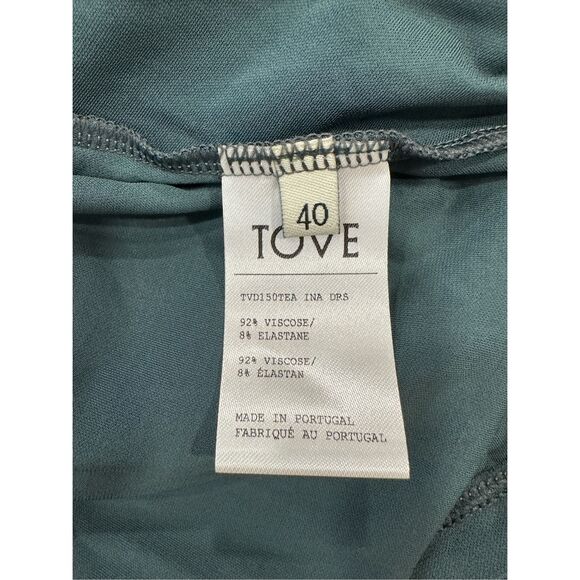 40
TOVE
TVD150TEA INA DRS
92% VISCOSE/
8% ELASTANE
92% VISCOSE/
8% ÉLASTAN
MADE IN PORTUGAL
FABRIQUÉ AU PORTUGAL